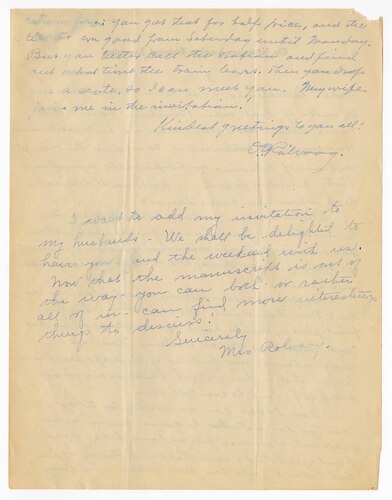 return fare: you get that for half price, and the
are good from Saturday until Monday.
But you better call the station and find
out what time the train leaves. Then you drop
me a note, so I can meet you. My wife
joins me in the invitation.
Kindest greetings to you all!
O. E. Rölvaag.
I want to add my invitation to
my husbands - We shall be delighted to
have you and the weekend with us.
Now that the manuscript is out of
the way - you can both - or rather
all of us - can find more interesting
things to discuss!
Sincerely
Mrs Rolvaag